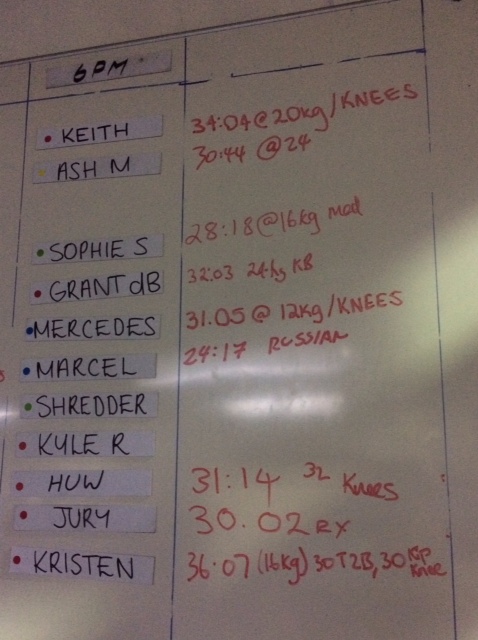 6PM
KEITH 34:04@20kg/KNEES
ASH M 30:44 @24
SOPHIE S 28:18@16kg mod
GRANT dB 32:03 24kg KB
MERCEDES 31.05@12kg/KNEES
MARCEL 24:17 RUSSIAN
SHREDDER
KYLE R
HUW 31:14 32 Knees
JURY 30.02 RX
KRISTEN 36.07 (16kg) 30 T2B, 30 Knee